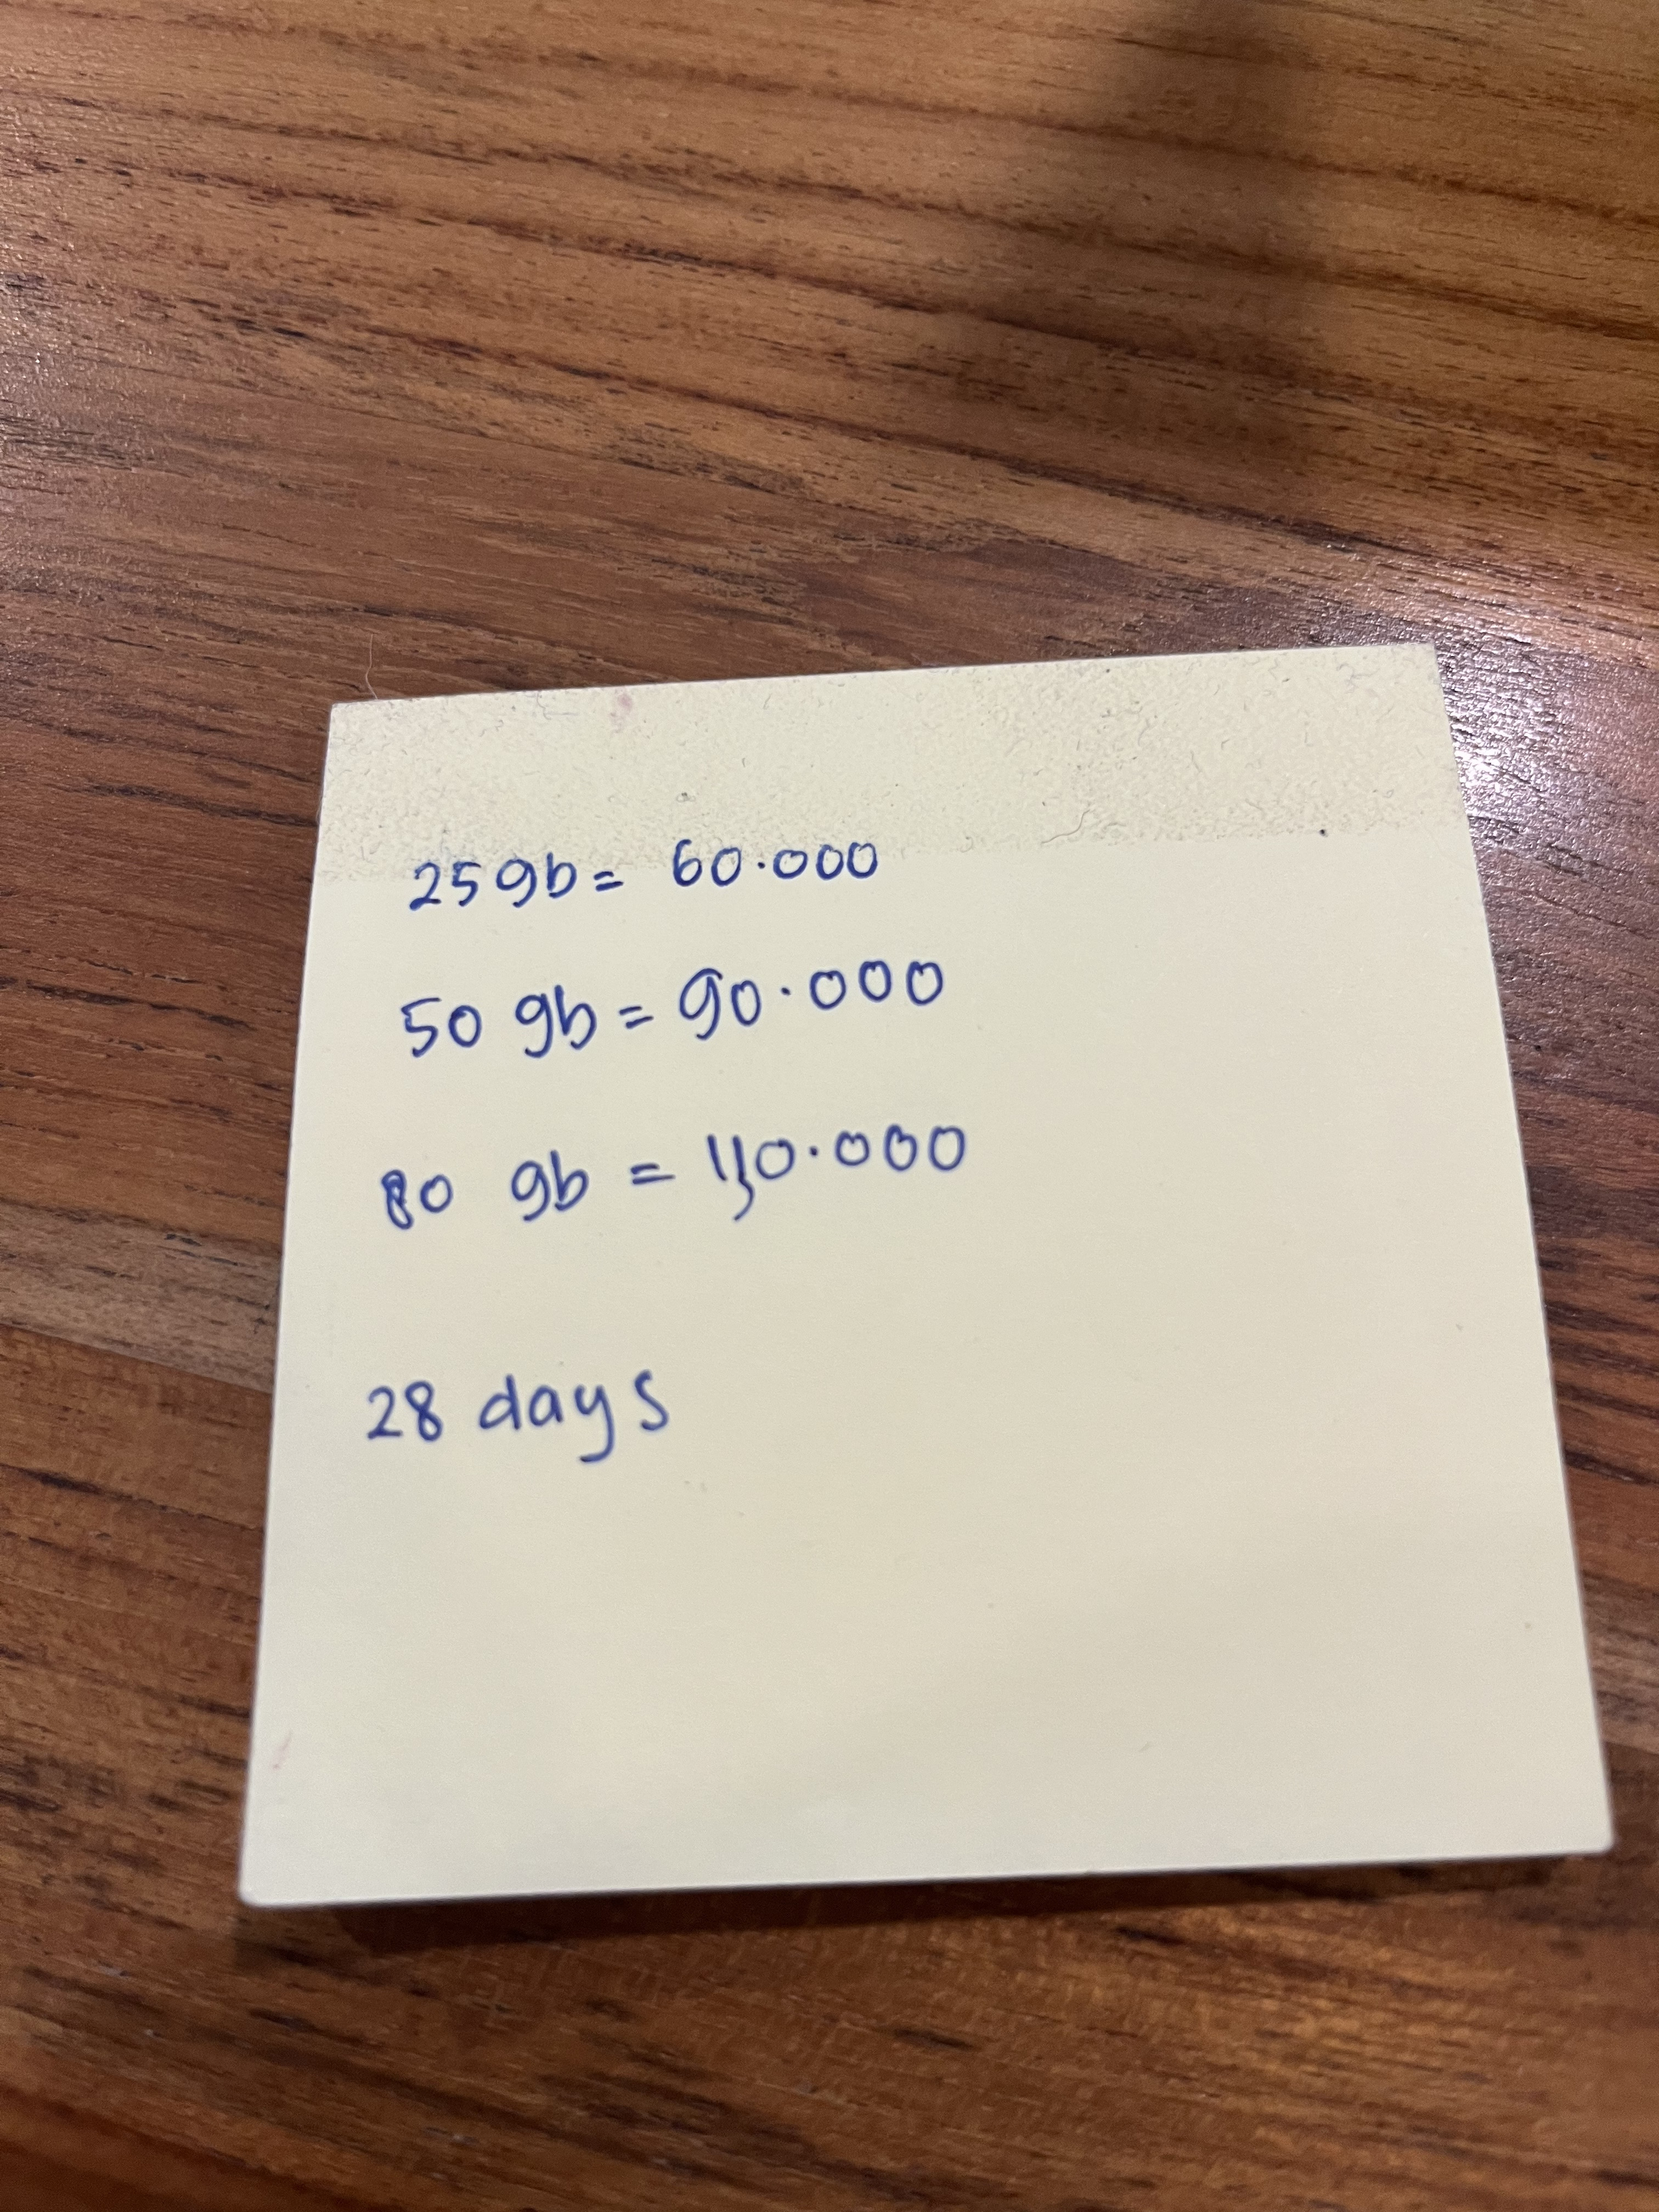 25 gb = 60.000
50 gb = 90.000
80 gb = 110.000
28 days